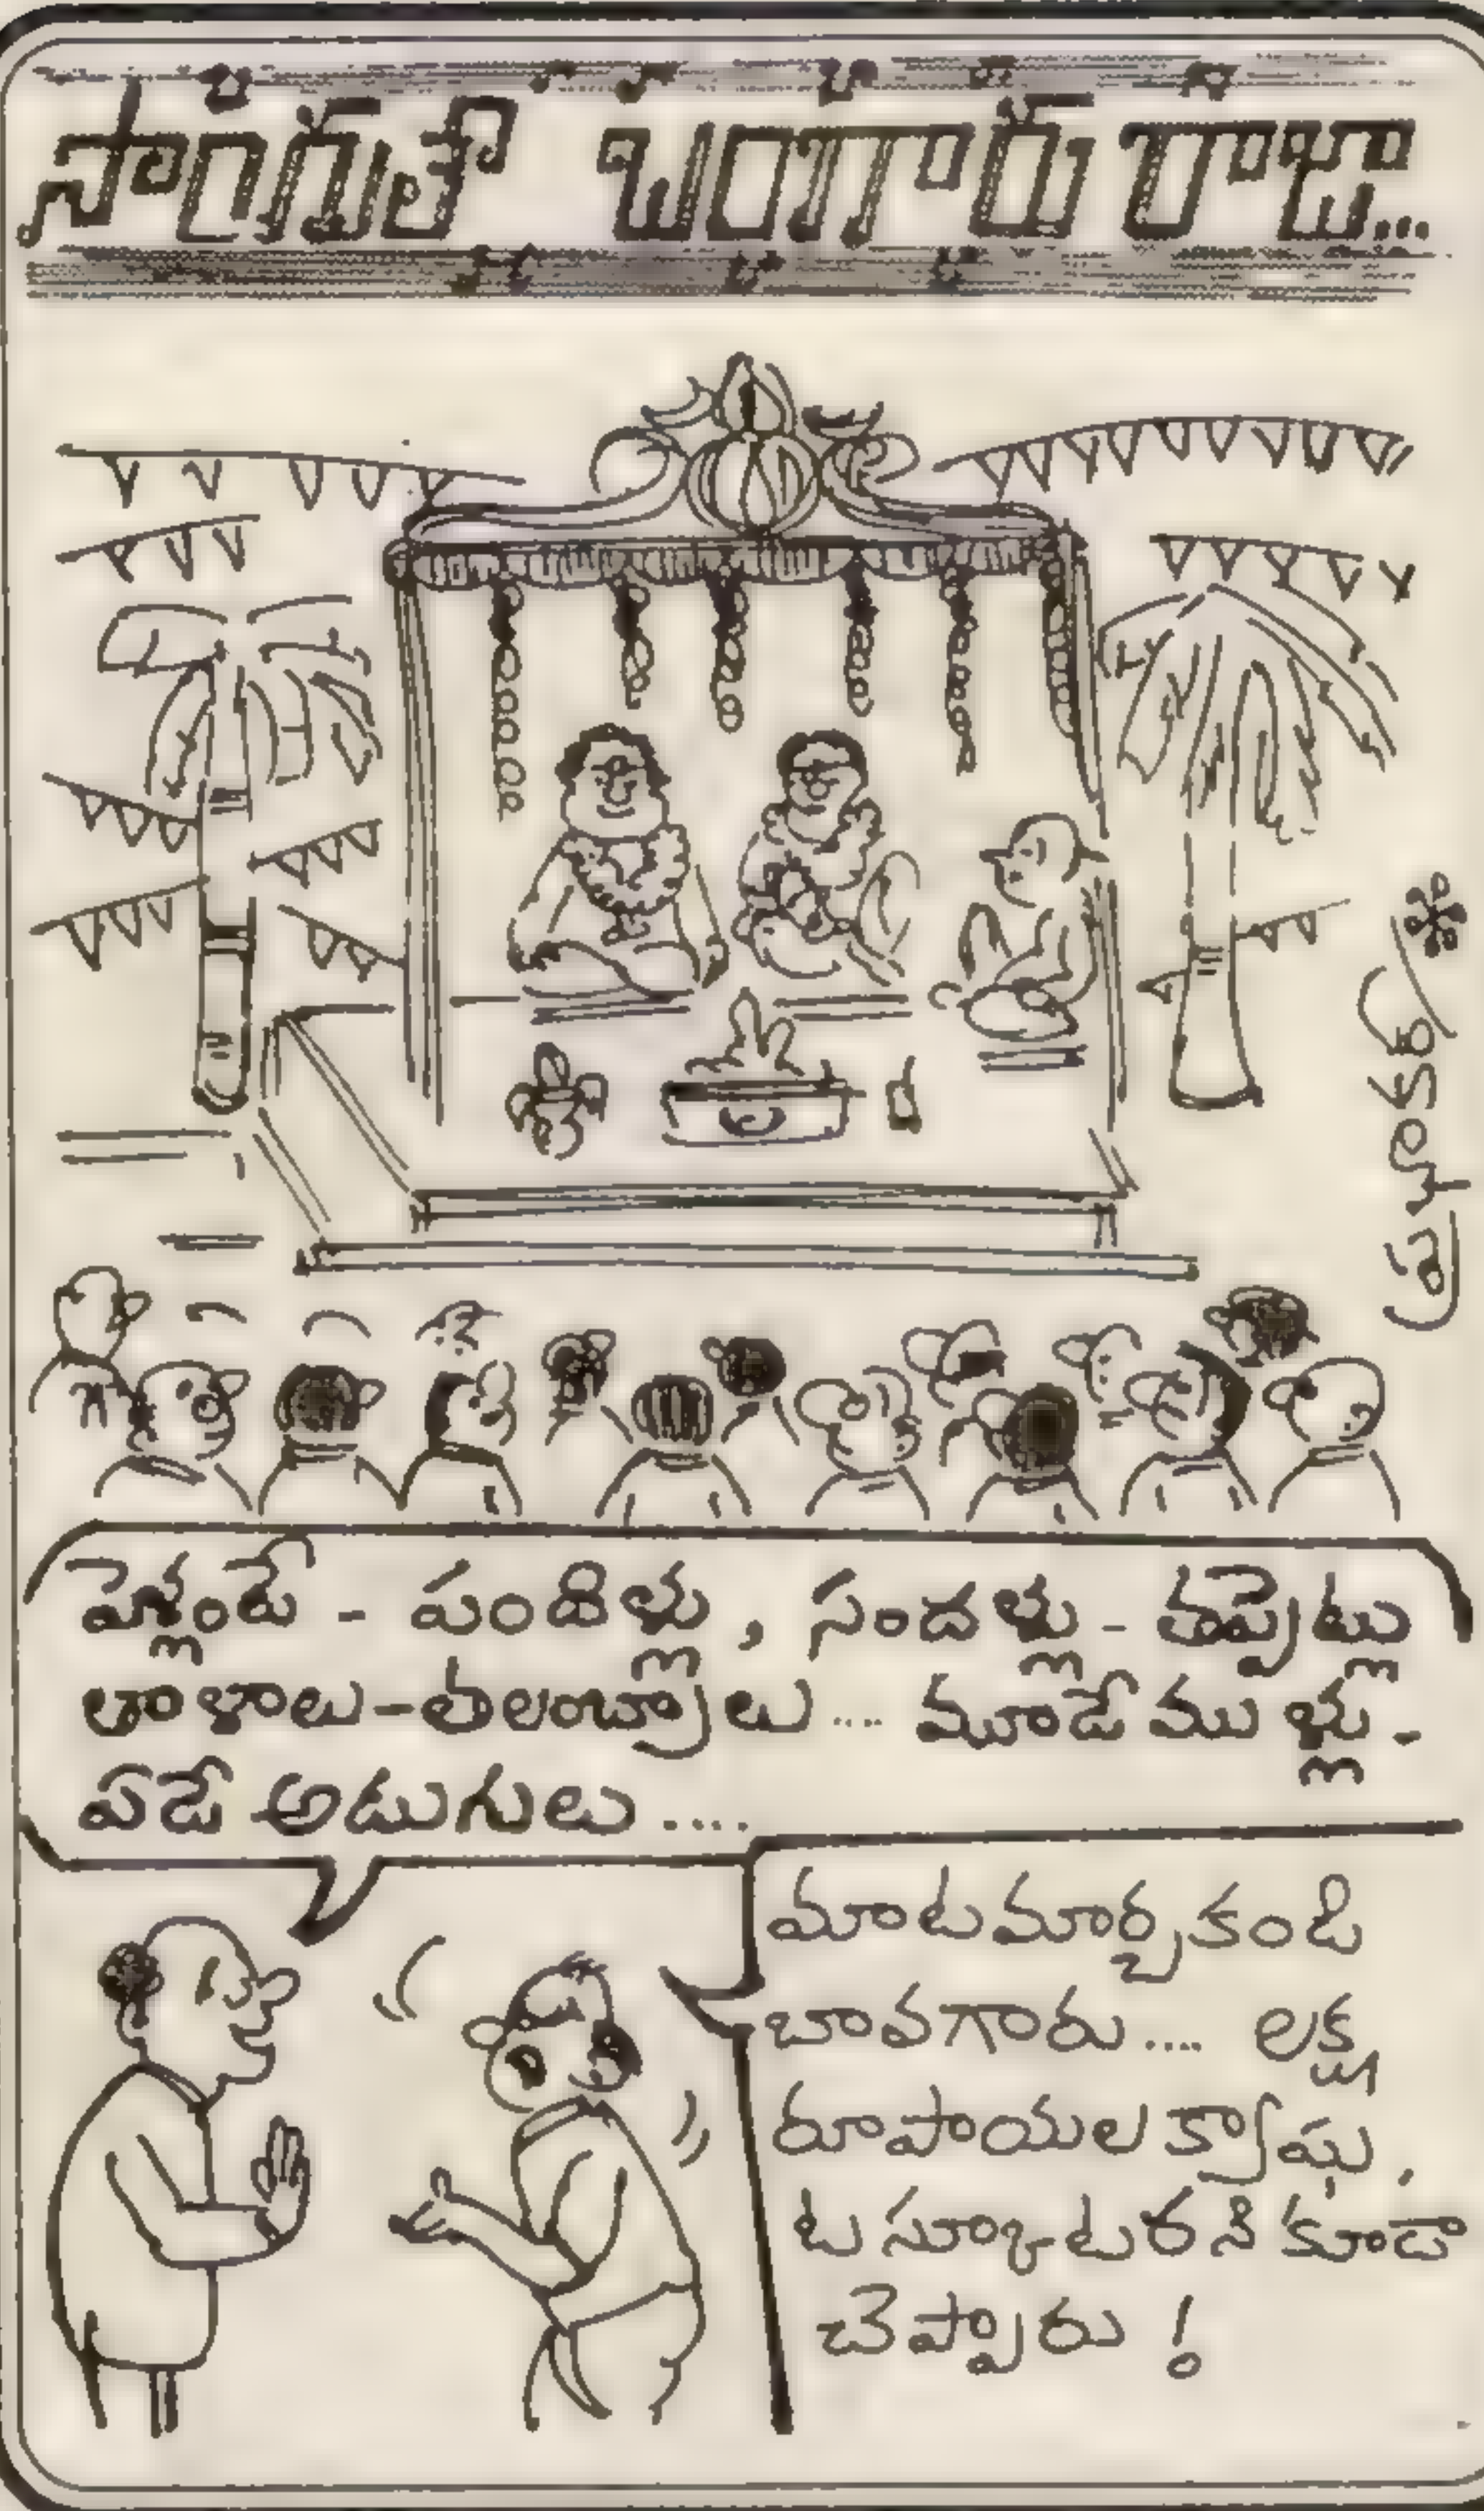 సొగుతే బంగారు రాజా...
పెళ్లంటే - పందిళ్లు, సందళ్లు - తప్పెట్లు
తాళాలు - తలంబ్రాలు .... మూడే ముళ్లు -
ఏడే అడుగులు ....
మాటమార్చకండి
బావగారు .... లక్ష
రూపాయల క్యాషు,
ట స్కూటరని కూడా
చెప్పారు !
ప్రభాకర్